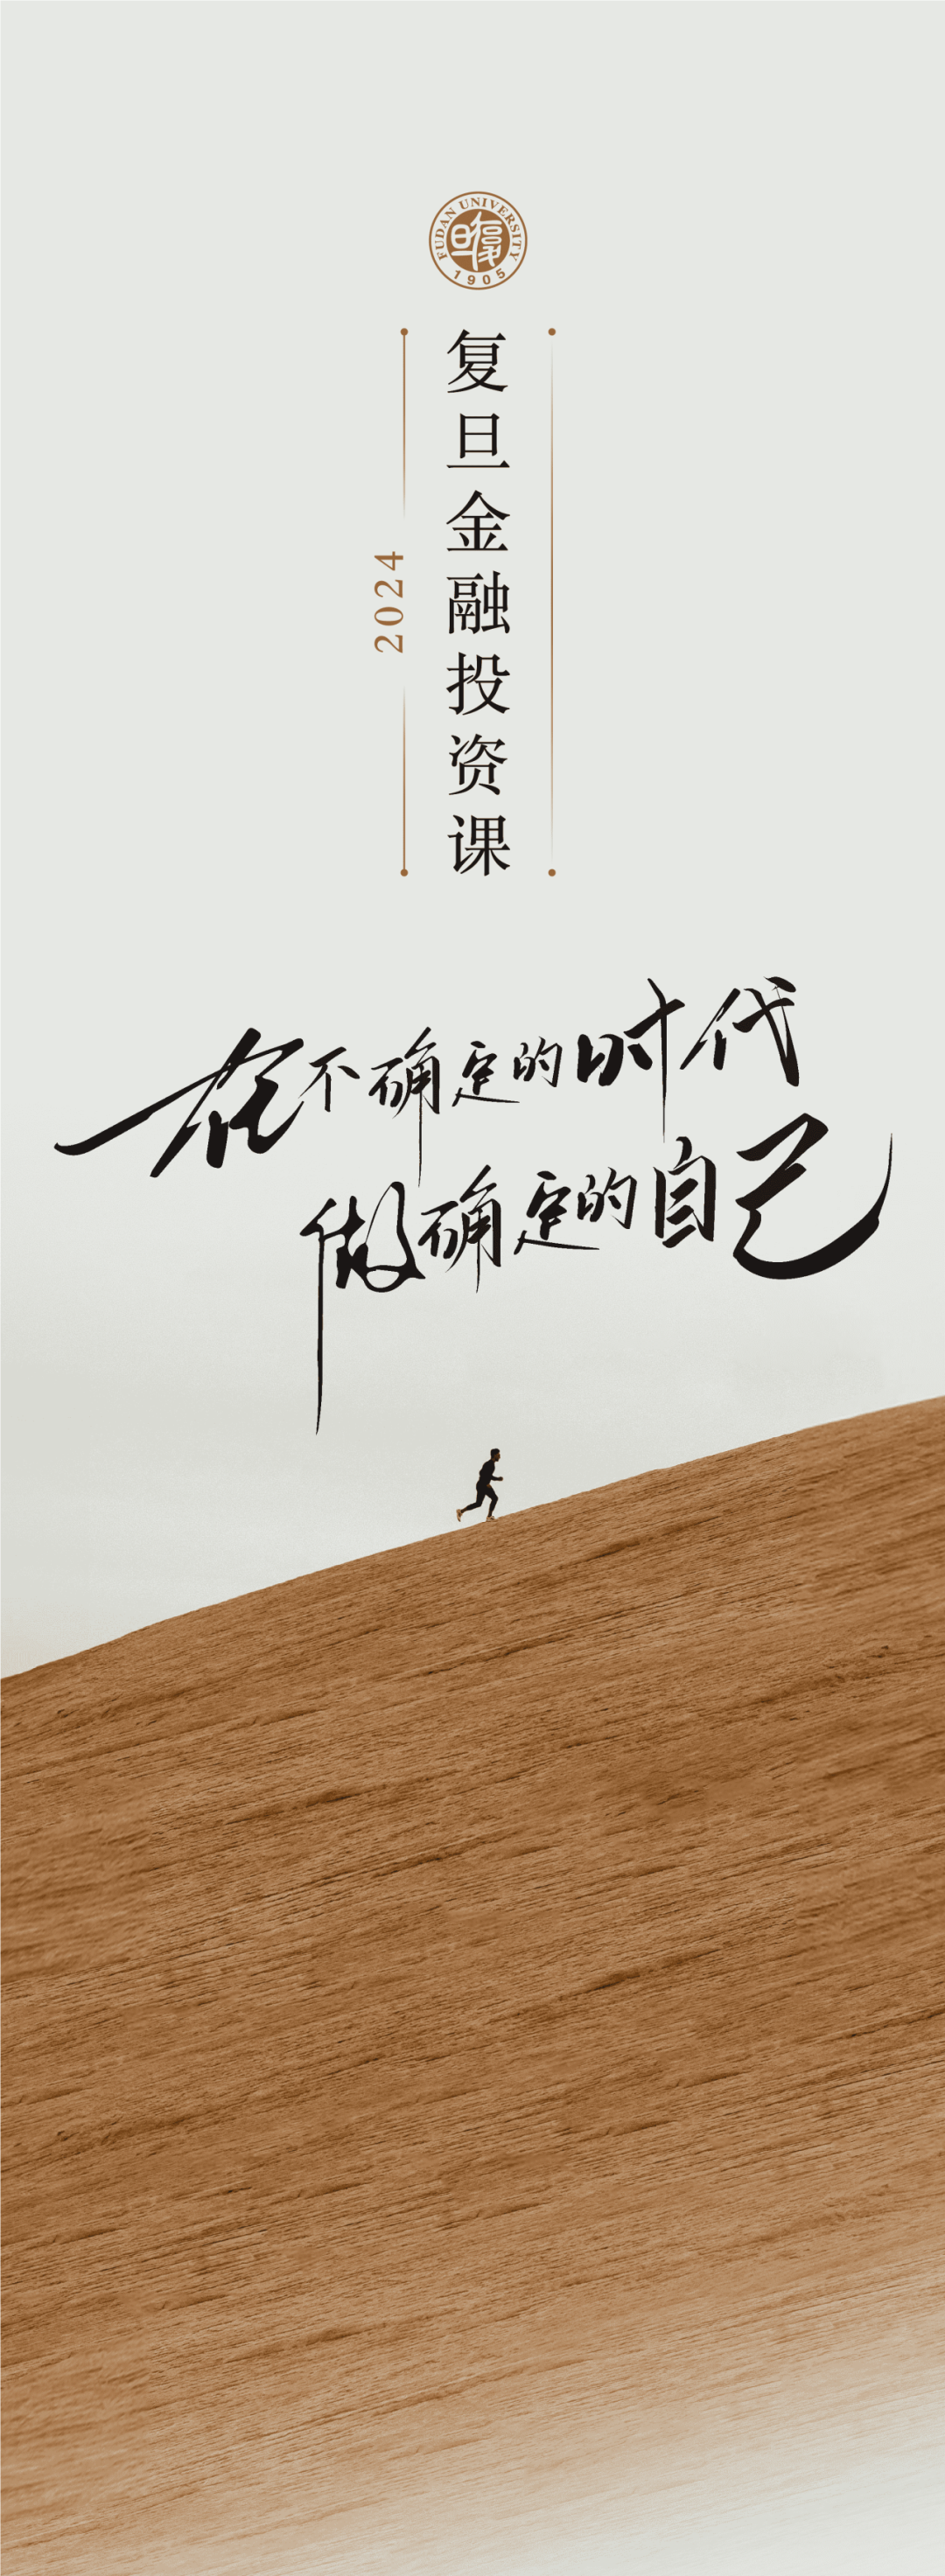 FUDAN UNIVERSITY
1905
复旦金融投资课
2024
在不确定的时代
做确定的自己